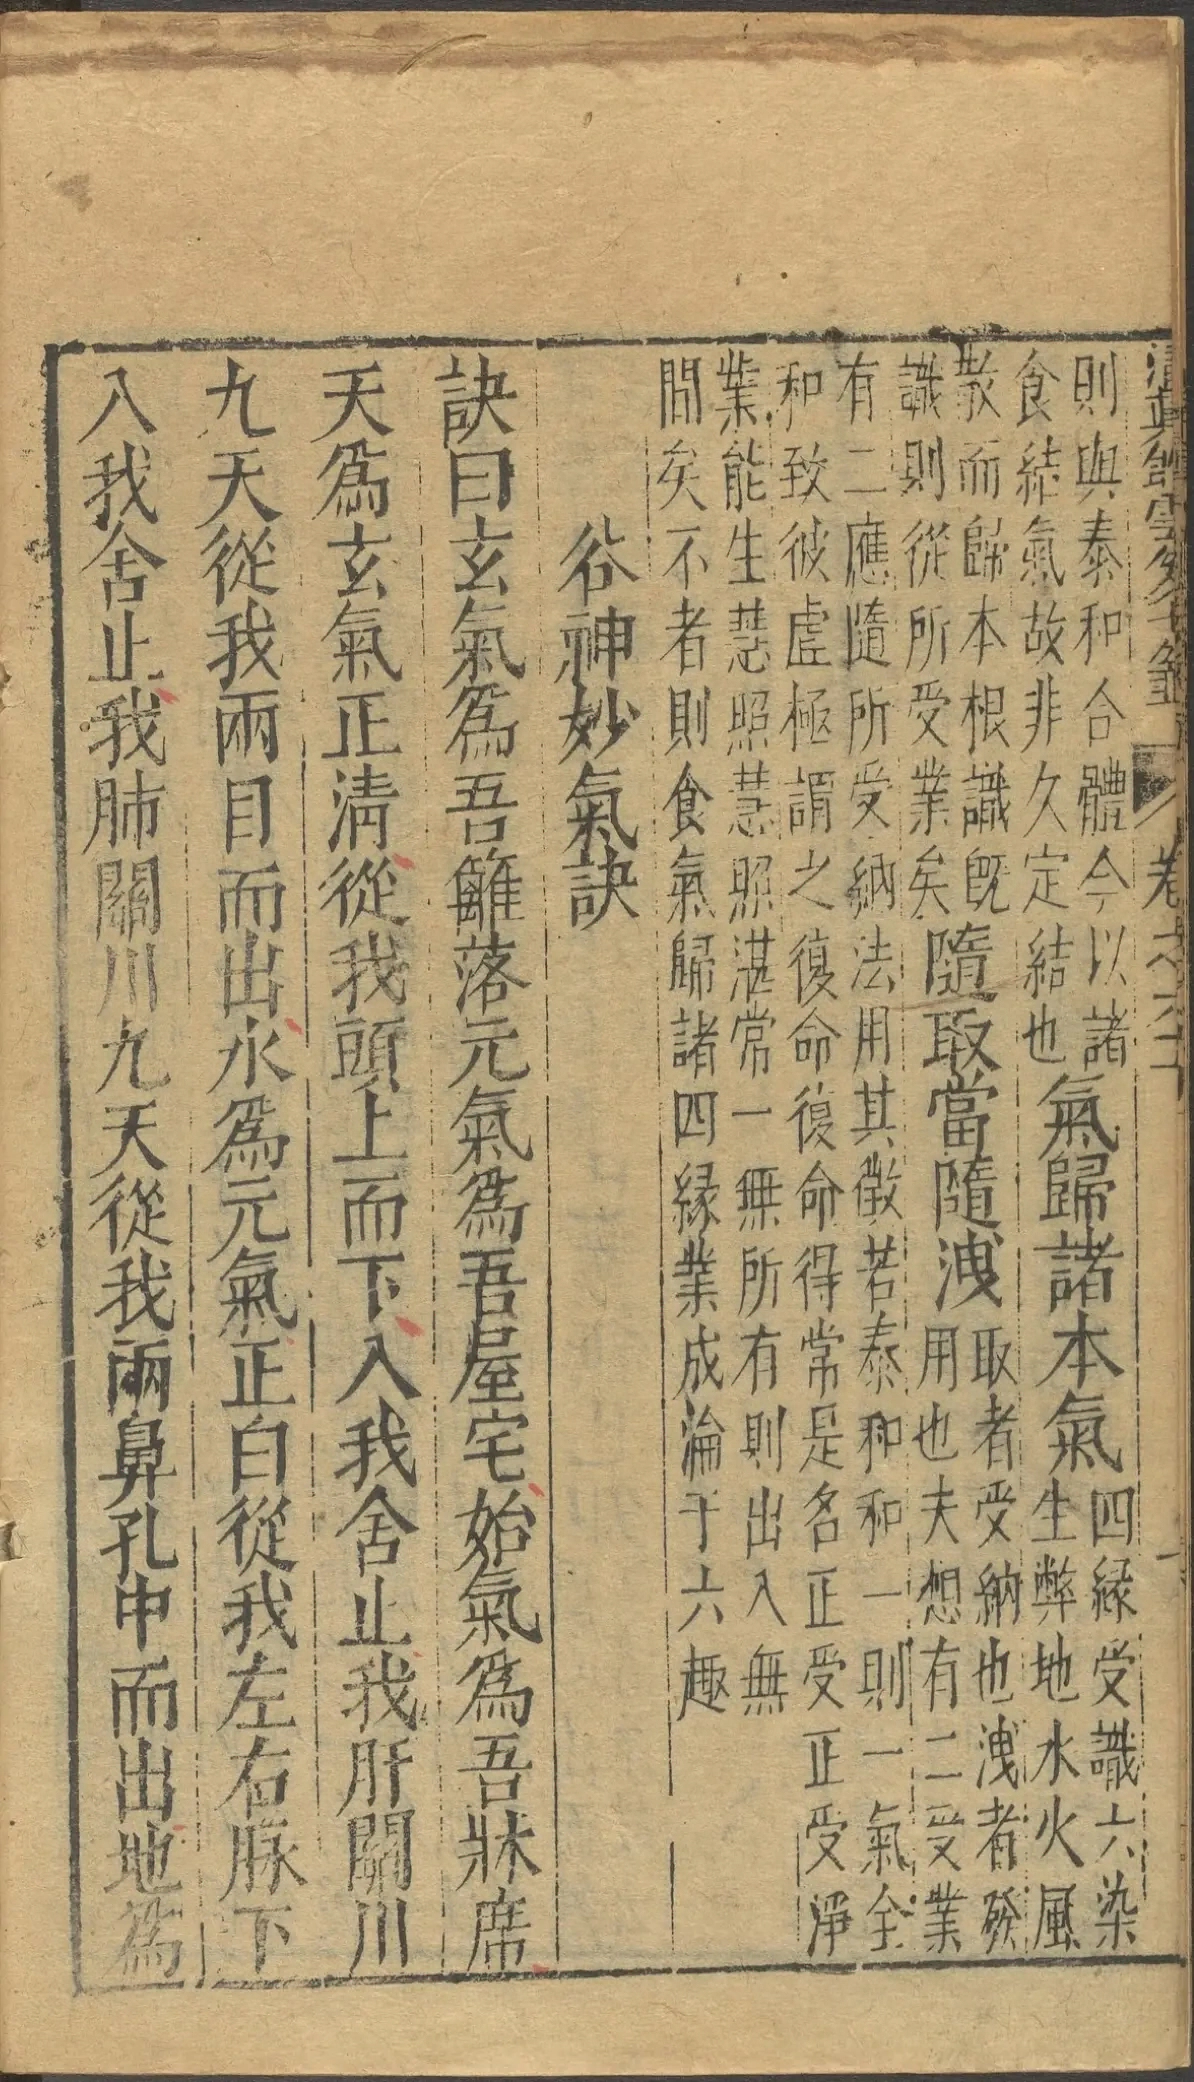 清真館雲笈七籤　卷之六十
則與泰和合體今以諸
食結氣故非久定結也
氣歸諸本氣
四緣受識六染
生弊地水火風
散而歸本根識既
識則從所受業矣
隨取當隨洩
取者受納也洩者發
用也夫想有二受業
有二應隨所受納法用其徵若泰和和一則一氣全
和致彼虛極謂之復命復命得常是名正受正受淨
業能生慧照慧照湛常一無所有則出入無
間矣不者則食氣歸諸四緣業成淪于六趣
谷神妙氣訣
訣曰玄氣爲吾籬落元氣爲吾屋宅始氣爲吾牀席
天爲玄氣正清從我頭上而下入我舍止我肝關川
九天從我兩目而出水爲元氣正白從我左右脉下
入我舍止我肺關川九天從我兩鼻孔中而出地爲